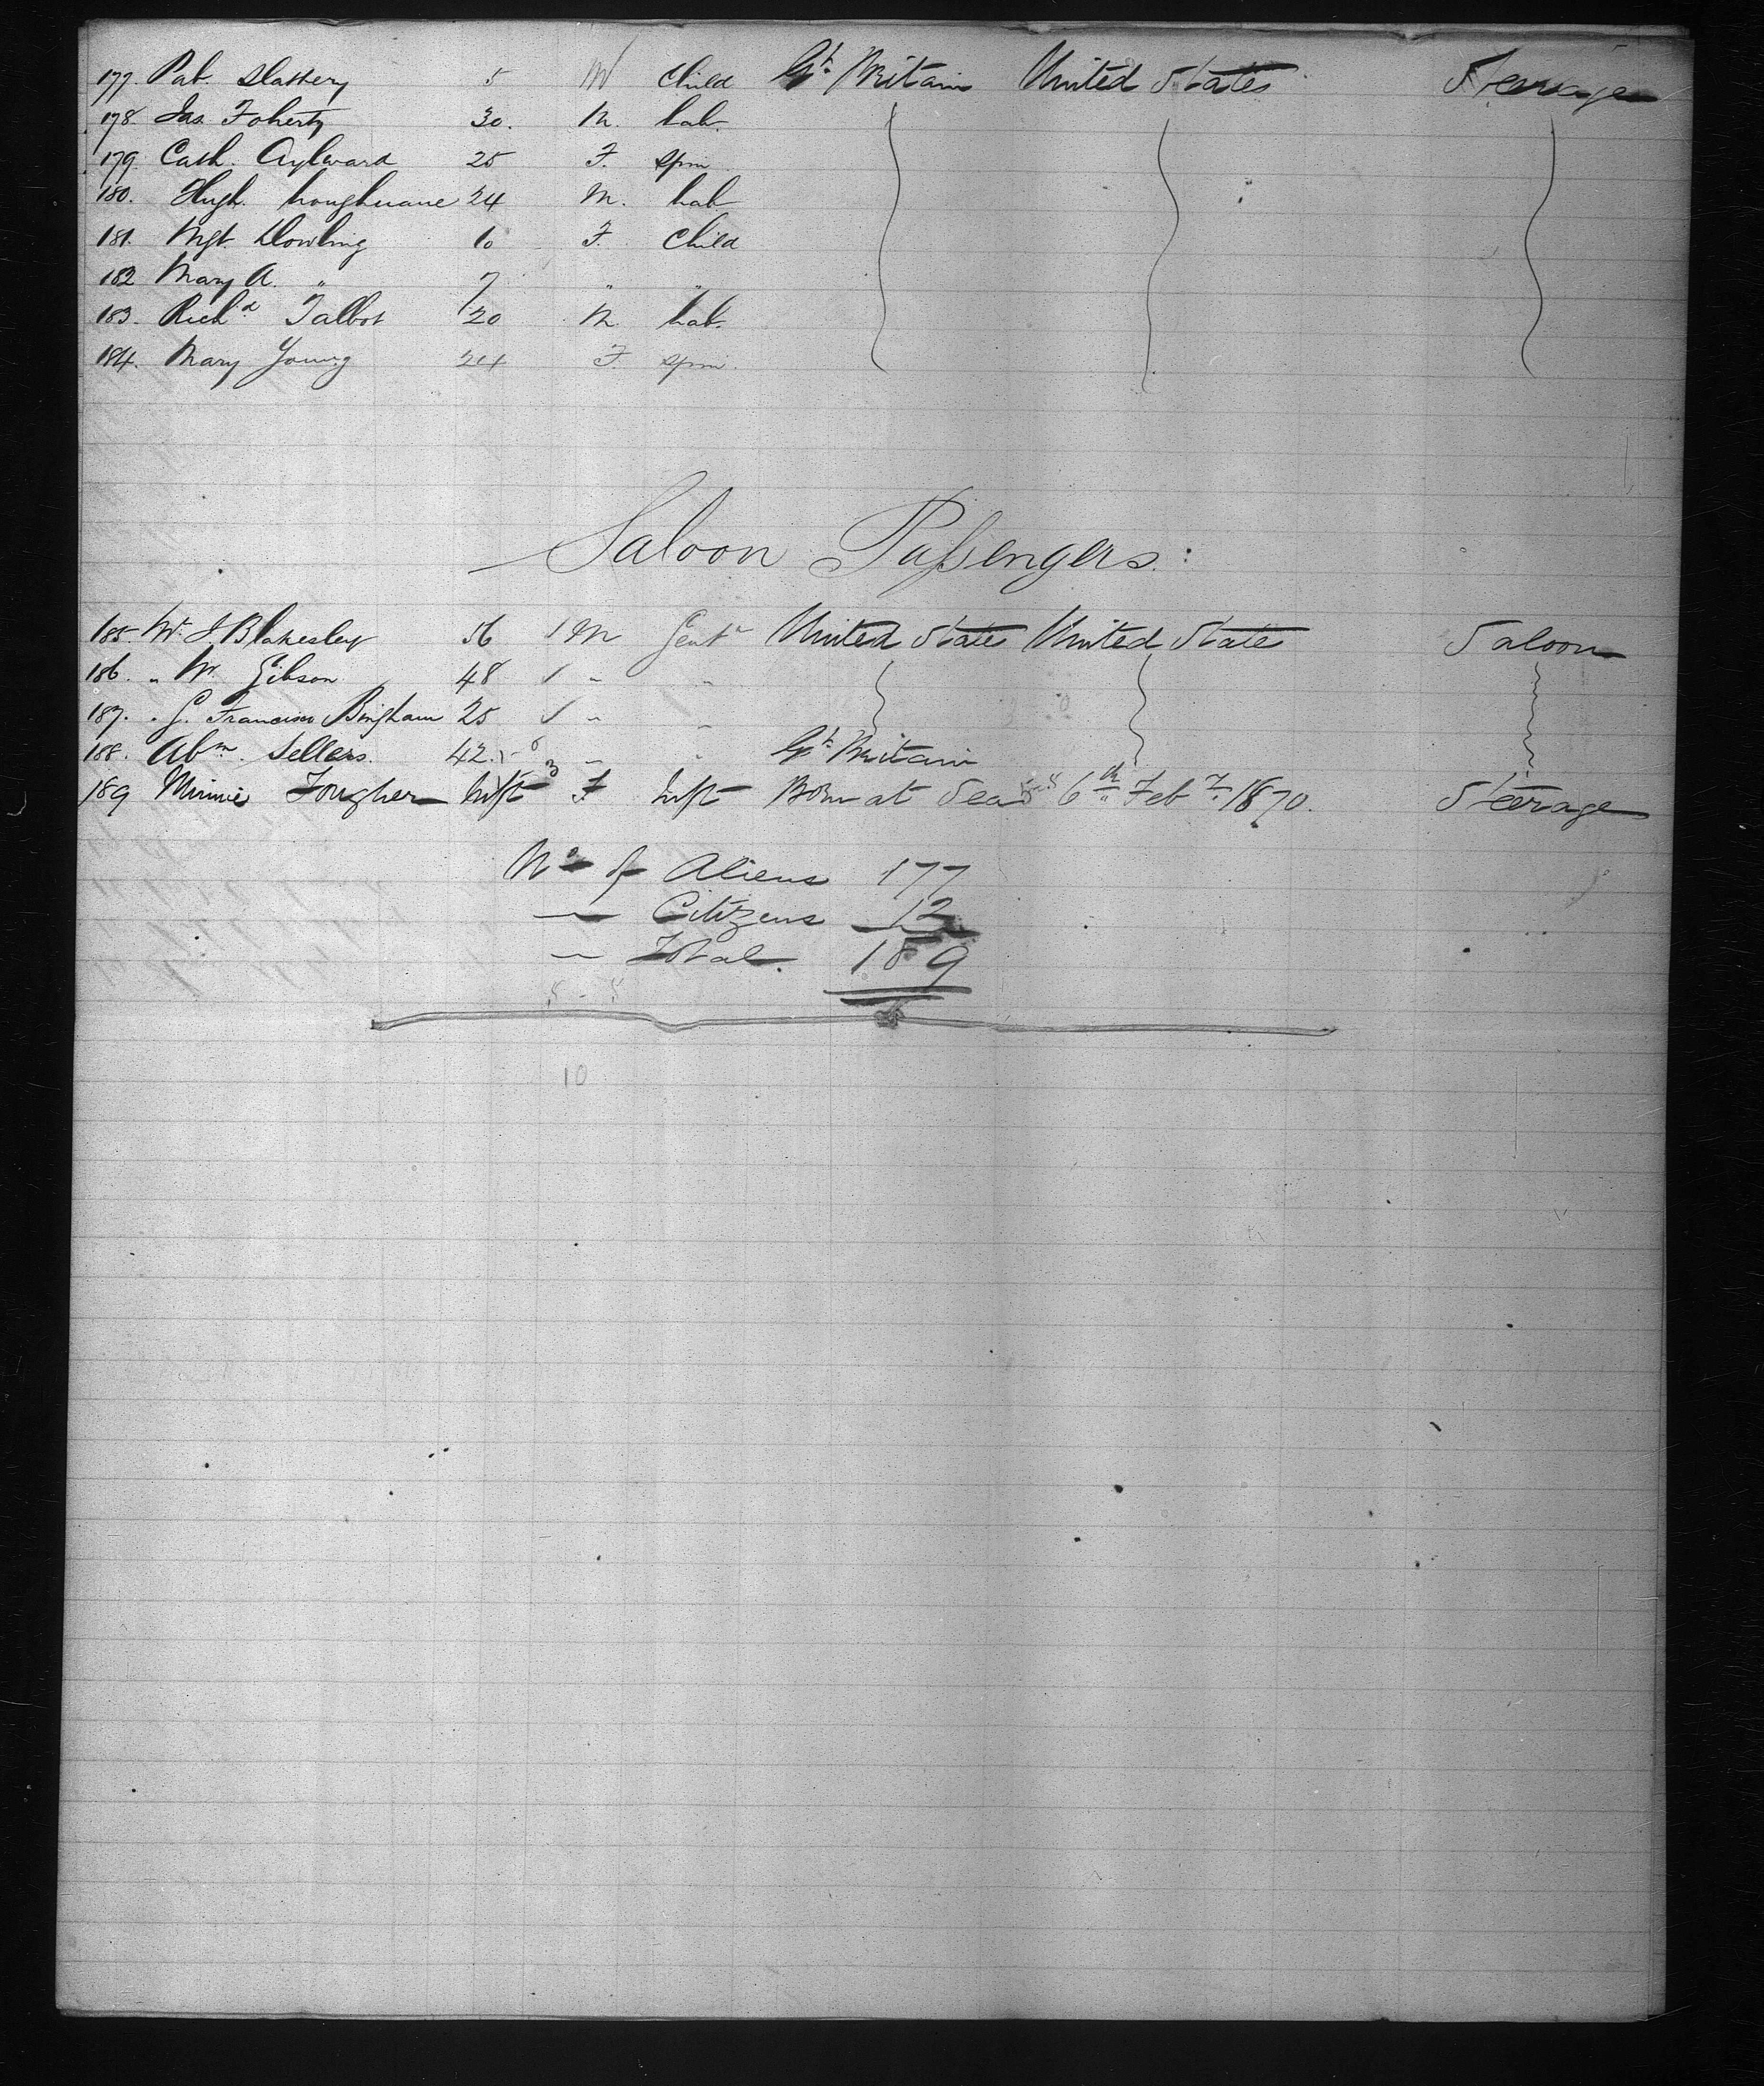 177. Pat. Slattery 5 M Child Gt. Britain United States Steerage
178. Jas. Foherty 30. M. Lab.
179. Cath. Aylward 25 F. Spin
180. Hugh. 24 M. Lab
181. Mgt. Dowling 10 F. Child
182 Mary A. " 7 " "
183. Richd Talbot 20 M. Lab.
184. Mary Young 24 F. Spin.
Saloon Passengers:
185. Mr. J. Blakesley 56 M Gent United States United States Saloon
186. " W. Gibson 48 " "
187. " G. Francisco Bingham 25 " "
188. Abm. Sellers. 42. " " Gt. Britain
189 Minnie Fougher Inft F Inft Born at Sea 6th Feby. 1870. Steerage
No of Aliens 177
— Citizens 12
— Total. 189
10